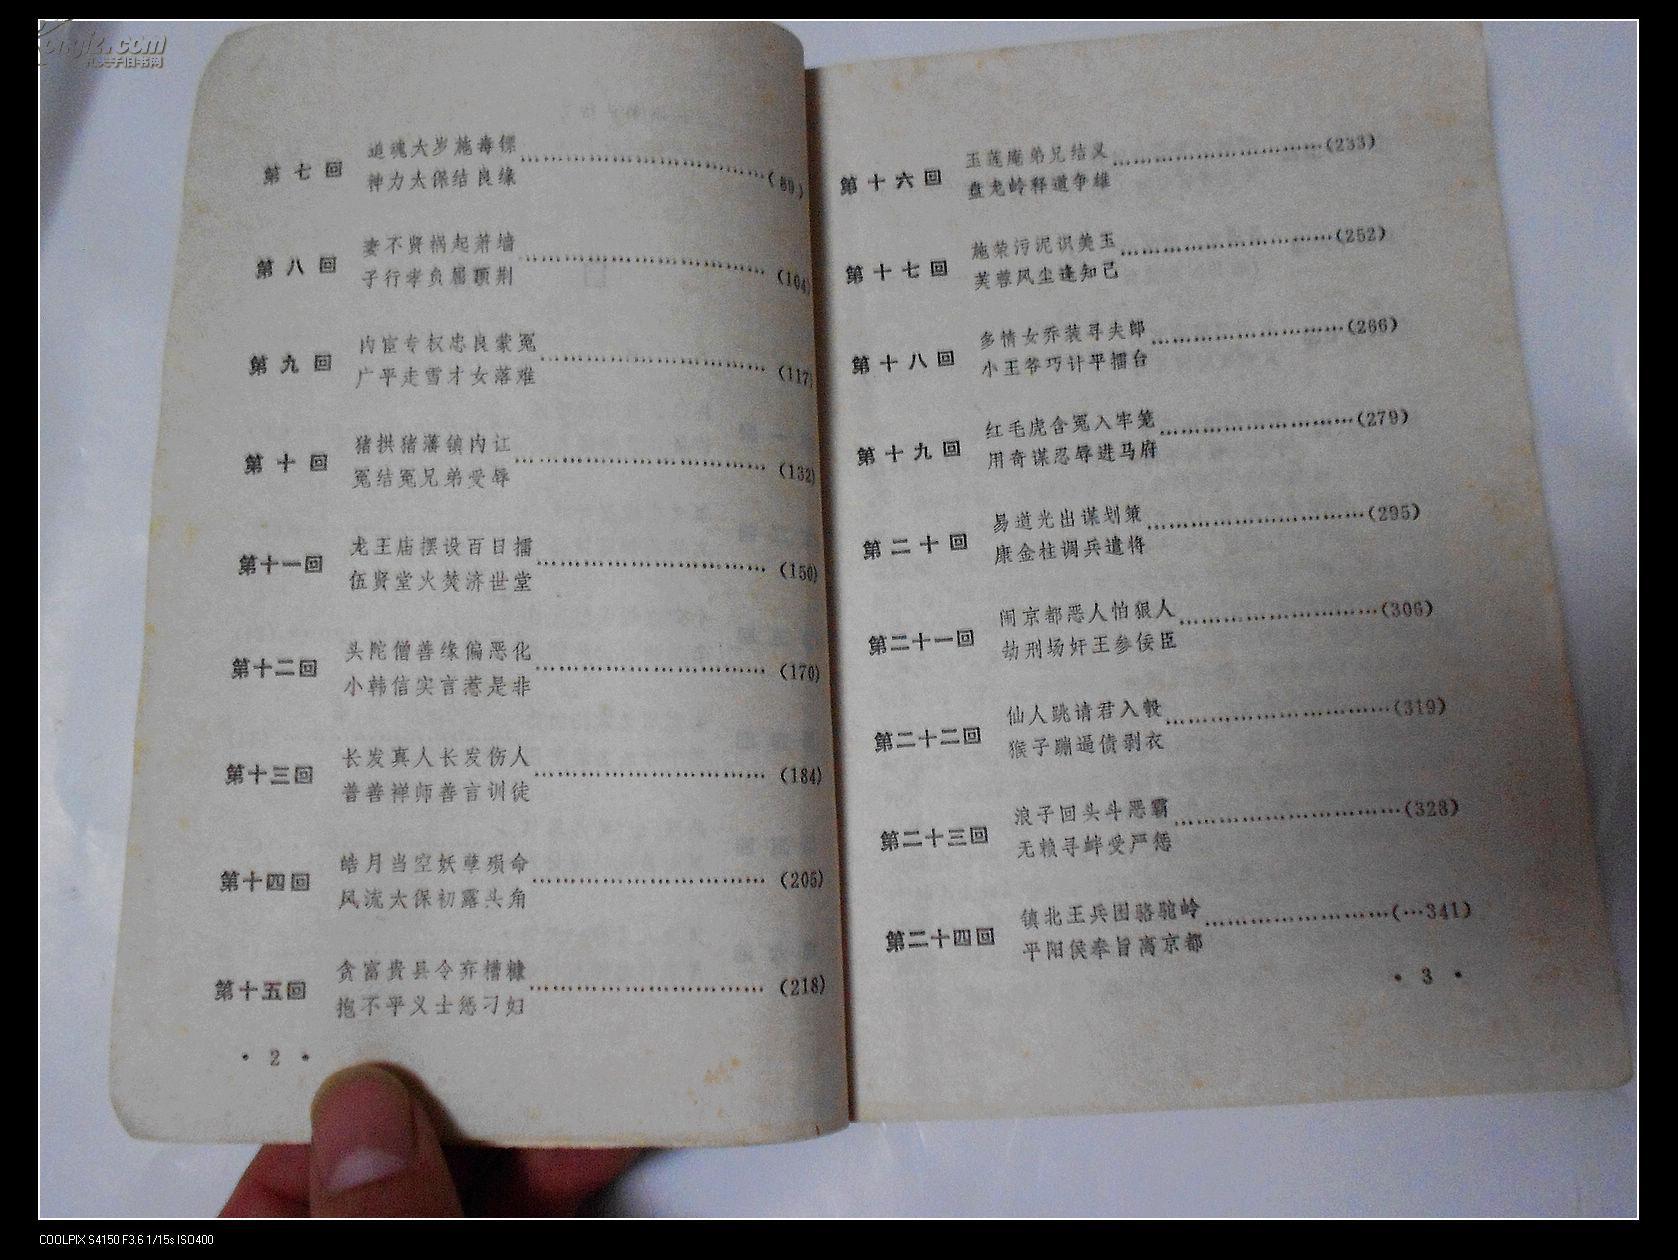 kongfz.com
孔夫子旧书网
第七回 追魂太岁施毒镖
神力太保结良缘 (89)
第八回 妻不贤祸起萧墙
子行孝负屈顶荆 (104)
第九回 内宦专权忠良蒙冤
广平走雪才女落难 (117)
第十回 猪拱猪藩镇内讧
冤结冤兄弟受辱 (132)
第十一回 龙王庙摆设百日擂
伍贤堂火焚济世堂 (150)
第十二回 头陀僧善缘偏恶化
小韩信实言惹是非 (170)
第十三回 长发真人长发伤人
普善禅师善言训徒 (184)
第十四回 皓月当空妖孽殒命
风流太保初露头角 (205)
第十五回 贪富贵县令弃槽糠
抱不平义士惩刁妇 (218)
· 2 ·
第十六回 玉莲庵弟兄结义
盘龙岭释道争雄 (233)
第十七回 施荣污泥识美玉
芙蓉风尘逢知己 (252)
第十八回 多情女乔装寻夫郎
小王爷巧计平擂台 (266)
第十九回 红毛虎含冤入牢笼
用奇谋忍辱进马府 (279)
第二十回 易道光出谋划策
康金柱调兵遣将 (295)
第二十一回 闹京都恶人怕狠人
劫刑场奸王参佞臣 (306)
第二十二回 仙人跳请君入彀
猴子蹦逼债剥衣 (319)
第二十三回 浪子回头斗恶霸
无赖寻衅受严惩 (328)
第二十四回 镇北王兵困骆驼岭
平阳侯奉旨离京都 (…341)
· 3 ·
COOLPIX S4150 F3.6 1/15s ISO400